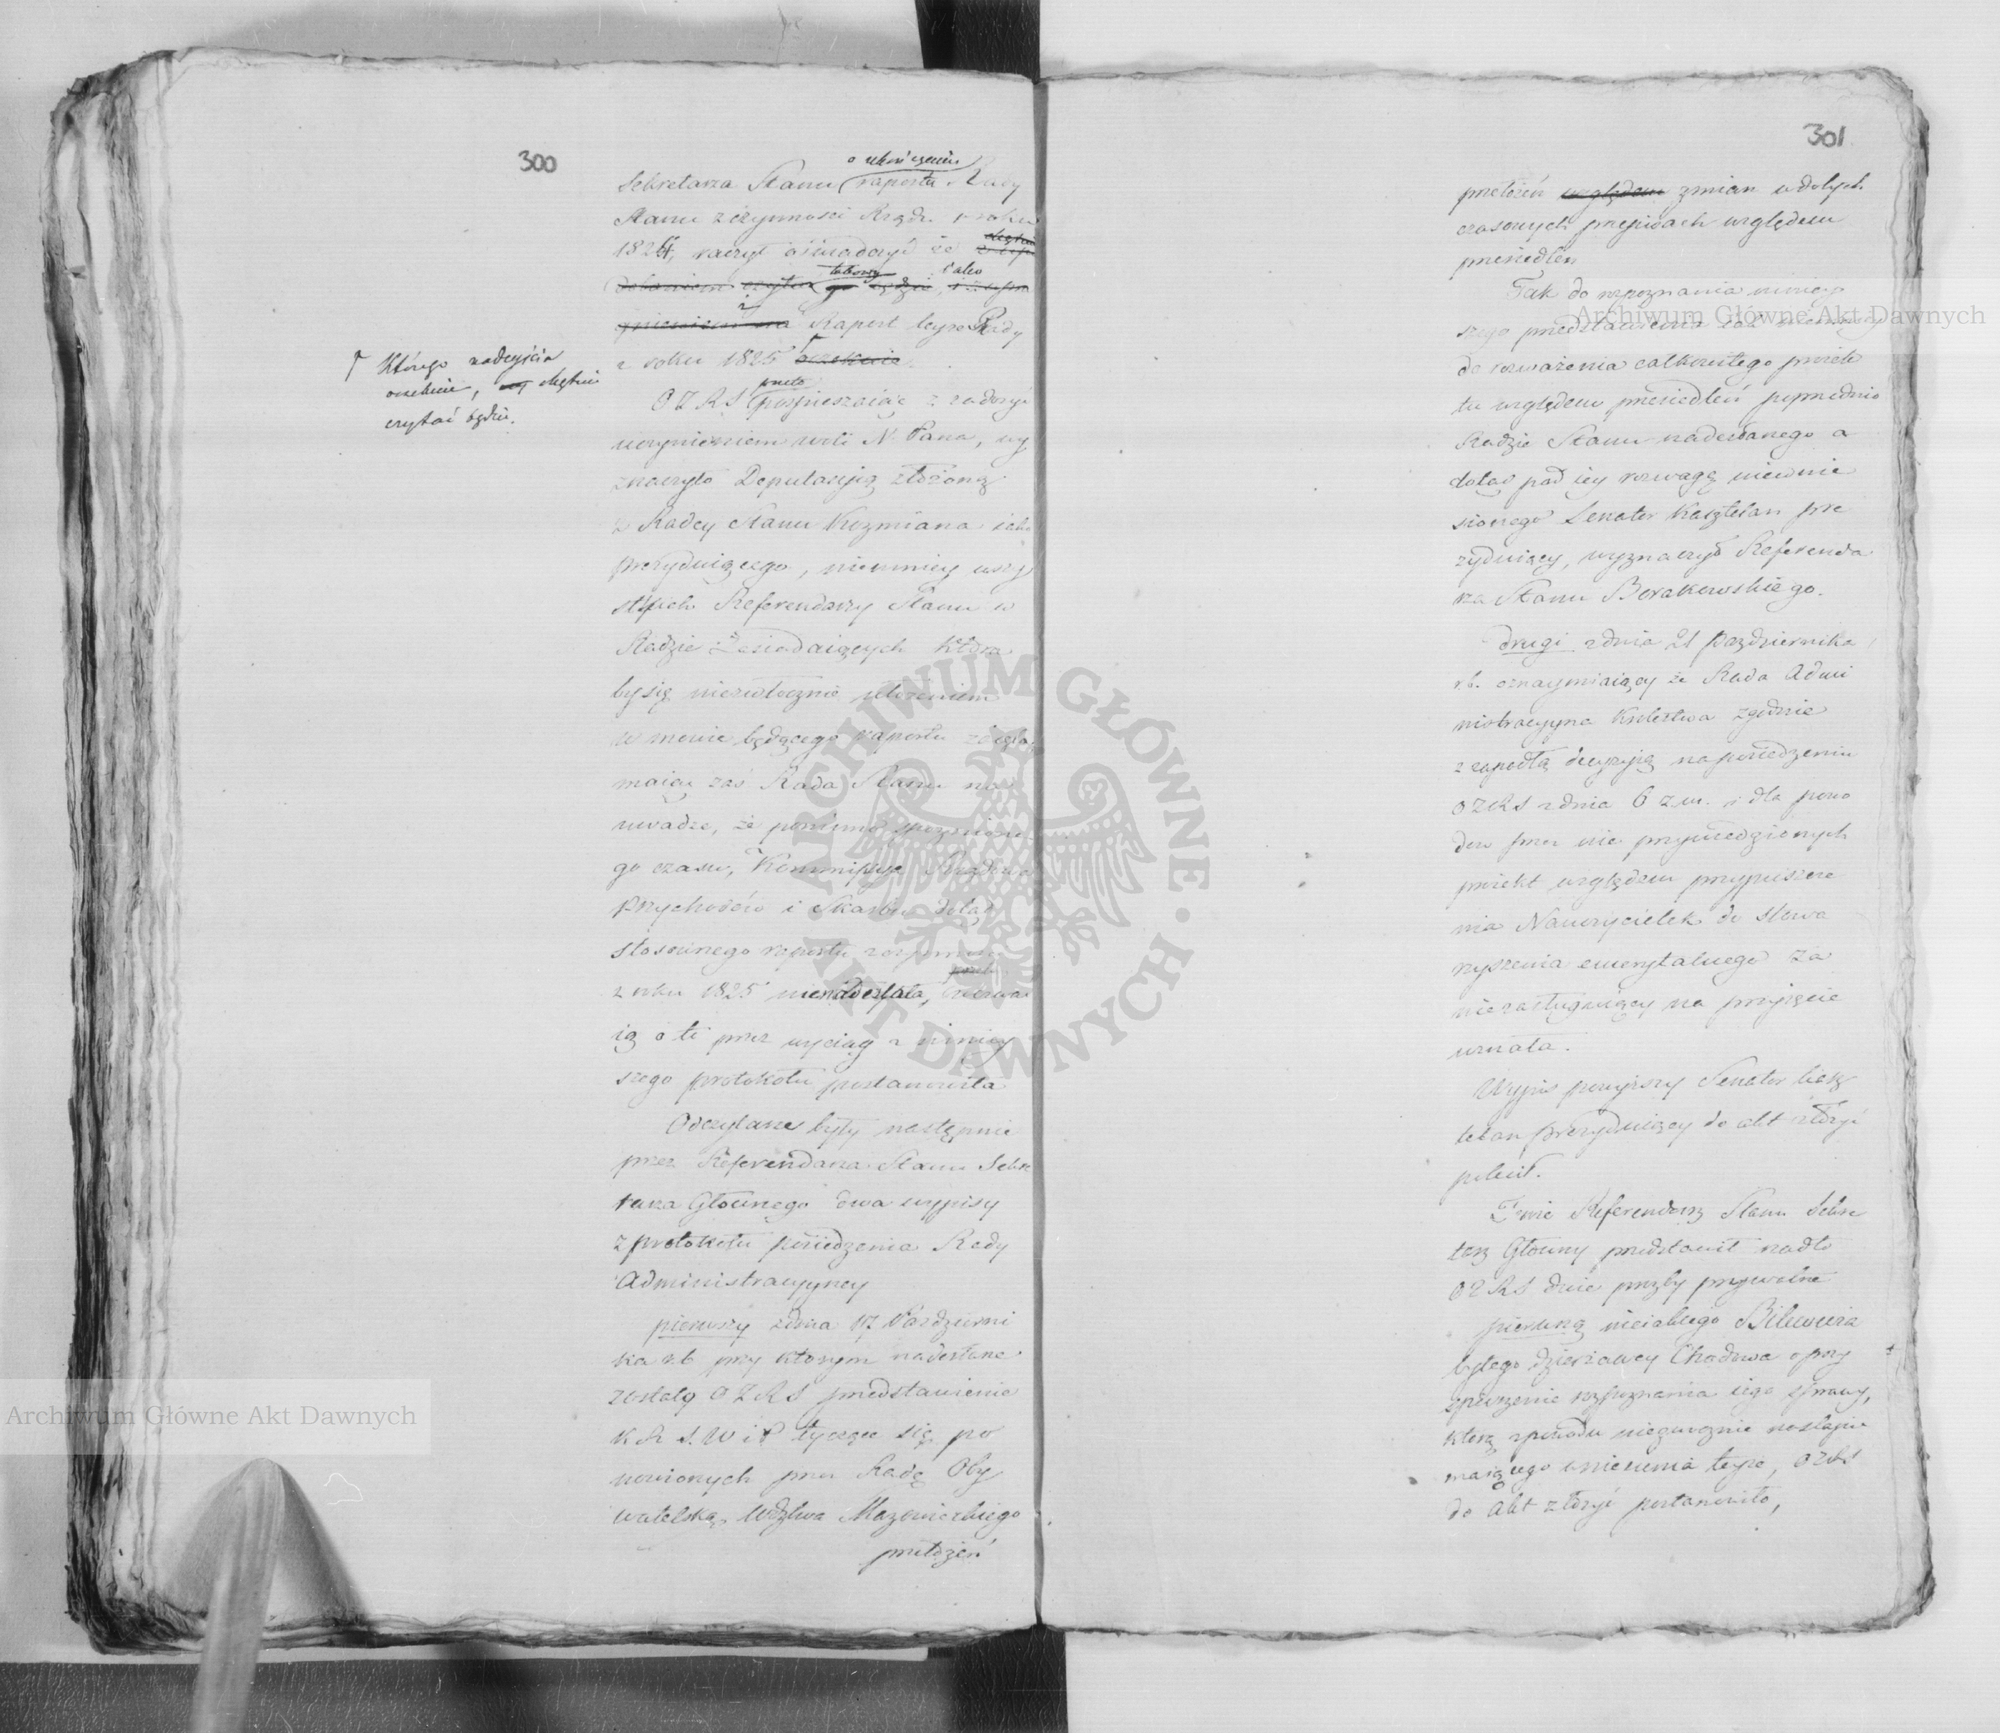 300
o ukończeniu
Sekretarza Stanu raportu Rady
Stanu z czynności Rządu z roku
1824, raczył oświadczyć że
Raport teyże Rady
z roku 1825 oczekuie.
† Którego nadeyścia
oczekuie, chętnie
czytać będzie.
przeto
OZRS pospieszaiąc z zadosyć
uczynieniem woli N. Pana, wy
znaczyło Deputacyią złożoną
z Radcy Stanu Kozmiana iako
prezyduiącego, niemniey wszy
stkich Referendarzy Stanu w
Radzie Zasiadaiących która
by się niezwłocznie ułożeniem
w mowie będącego raportu zaięła,
maiąc zaś Rada Stanu na
uwadze, że pomimo spoznione
go czasu, Kommissya Rządowa
Przychodów i Skarbu dotąd
stosownego raportu
z roku 1825 nienadesłała,
ią o to przez wyciąg z niniey
szego protokołu postanowiła
Odczytane były następnie
przez Referendarza Stanu Sekre
tarza Głównego dwa wypisy
z protokołu posiedzenia Rady
Administracyyney
pierwszy z dnia 17 Pazdzierni
ka r.b. przy którym nadesłane
zostało OZRS przedstawienie
K R S. W i P tyczące się po
nowionych przez Radę Oby
watelską Wdztwa Mazowieckiego
przełożeń
301
przełożeń względem zmian w dotych
czasowych przepisach względem
przesiedleń
Tak do rozpoznania niniey
szego przedstawienia iak niemniey
do rozważenia całkowitego proiek
tu względem przesiedleń poprzednio
Radzie Stanu nadesłanego a
dotąd pod iey rozwagę niewnie
sionego Senator Kasztelan pre
zyduiący, wyznaczył Referenda
rza Stanu Borakowskiego.
drugi z dnia 21 Pazdziernika
r.b. oznaymiaiący że Rada Admi
nistracyyna Królestwa zgodnie
z zapadłą decyzyią na posiedzeniu
OZRS z dnia 6 z.m. i dla powo
dów przez nie przywiedzionych
proiekt względem przypuszcze
nia Nauczycielek do stowa
rzyszenia emerytalnego za
niezasługuiący na przyięcie
uznała.
Wypis powyższy Senator Kasz
telan prezyduiący do akt złożyć
polecił.
Tenże Referendarz Stanu Sekre
tarz Główny przedstawił nadto
OZRS dwie prozby prywatne
pierwszą nieiakiego Bilewicza
byłego dzierzawcy Chodowa o przy
spieszenie rozpoznania iego sprawy,
którą z powodu niezwocznie nastąpić
maiącego wniesienia teyże, OZRS
do akt złożyć postanowiło,
Archiwum Główne Akt Dawnych
Archiwum Główne Akt Dawnych
ARCHIWUM GŁÓWNE · AKT DAWNYCH ·